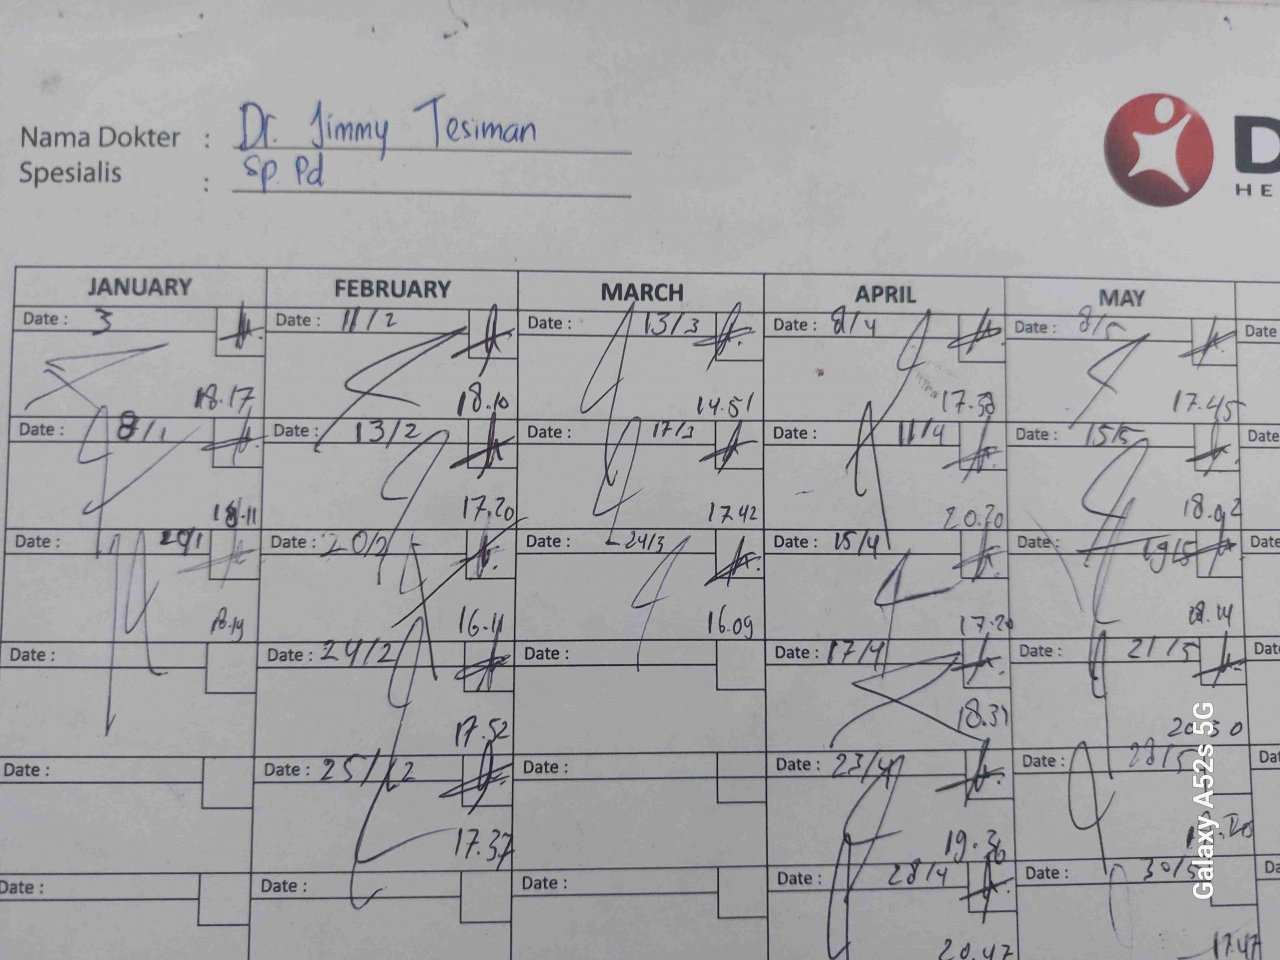 Nama Dokter : Dr. Jimmy Tesiman
Spesialis : Sp. Pd
D
HE
JANUARY FEBRUARY MARCH APRIL MAY
Date : 3 Date : 11/2 Date : 13/3 Date : 8/4 Date : 8/5 Date
18.17 18.10 14.51 17.30 17.45
Date : 8/1 Date : 13/2 Date : 17/3 Date : 11/4 Date : 15/5 Date
18.11 17.20 17.42 20.20 18.02
Date : 20/1 Date : 20/2 Date : 24/3 Date : 15/4 Date : 19/5 Date
18.19 16.11 16.09 17.20 18.14
Date : Date : 24/2 Date : Date : 17/4 Date : 21/5 Dat
17.52 18.31 20.30
Date : Date : 25/2 Date : Date : 23/4 Date : 28/5 Da
17.37 19.36
Date : Date : Date : Date : 28/4 Date : 30/5 Da
20.47 17.47
Galaxy A52s 5G